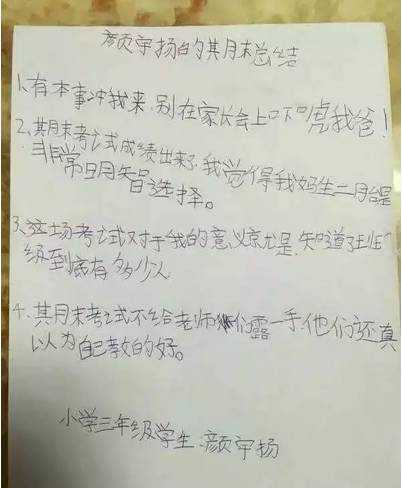 颜宇扬的其月末总结
1、有本事冲我来,别在家长会上吓唬我爸!
2、其月末考试成绩出来了,我觉得我妈生二胎是
非常明智选择。
3、这场考试对于我的意义京尤是,知道了班
级到底有多少人
4、其月末考试不给老师们露一手他们还真
以为自己教的好。
小学三年级学生:颜宇扬